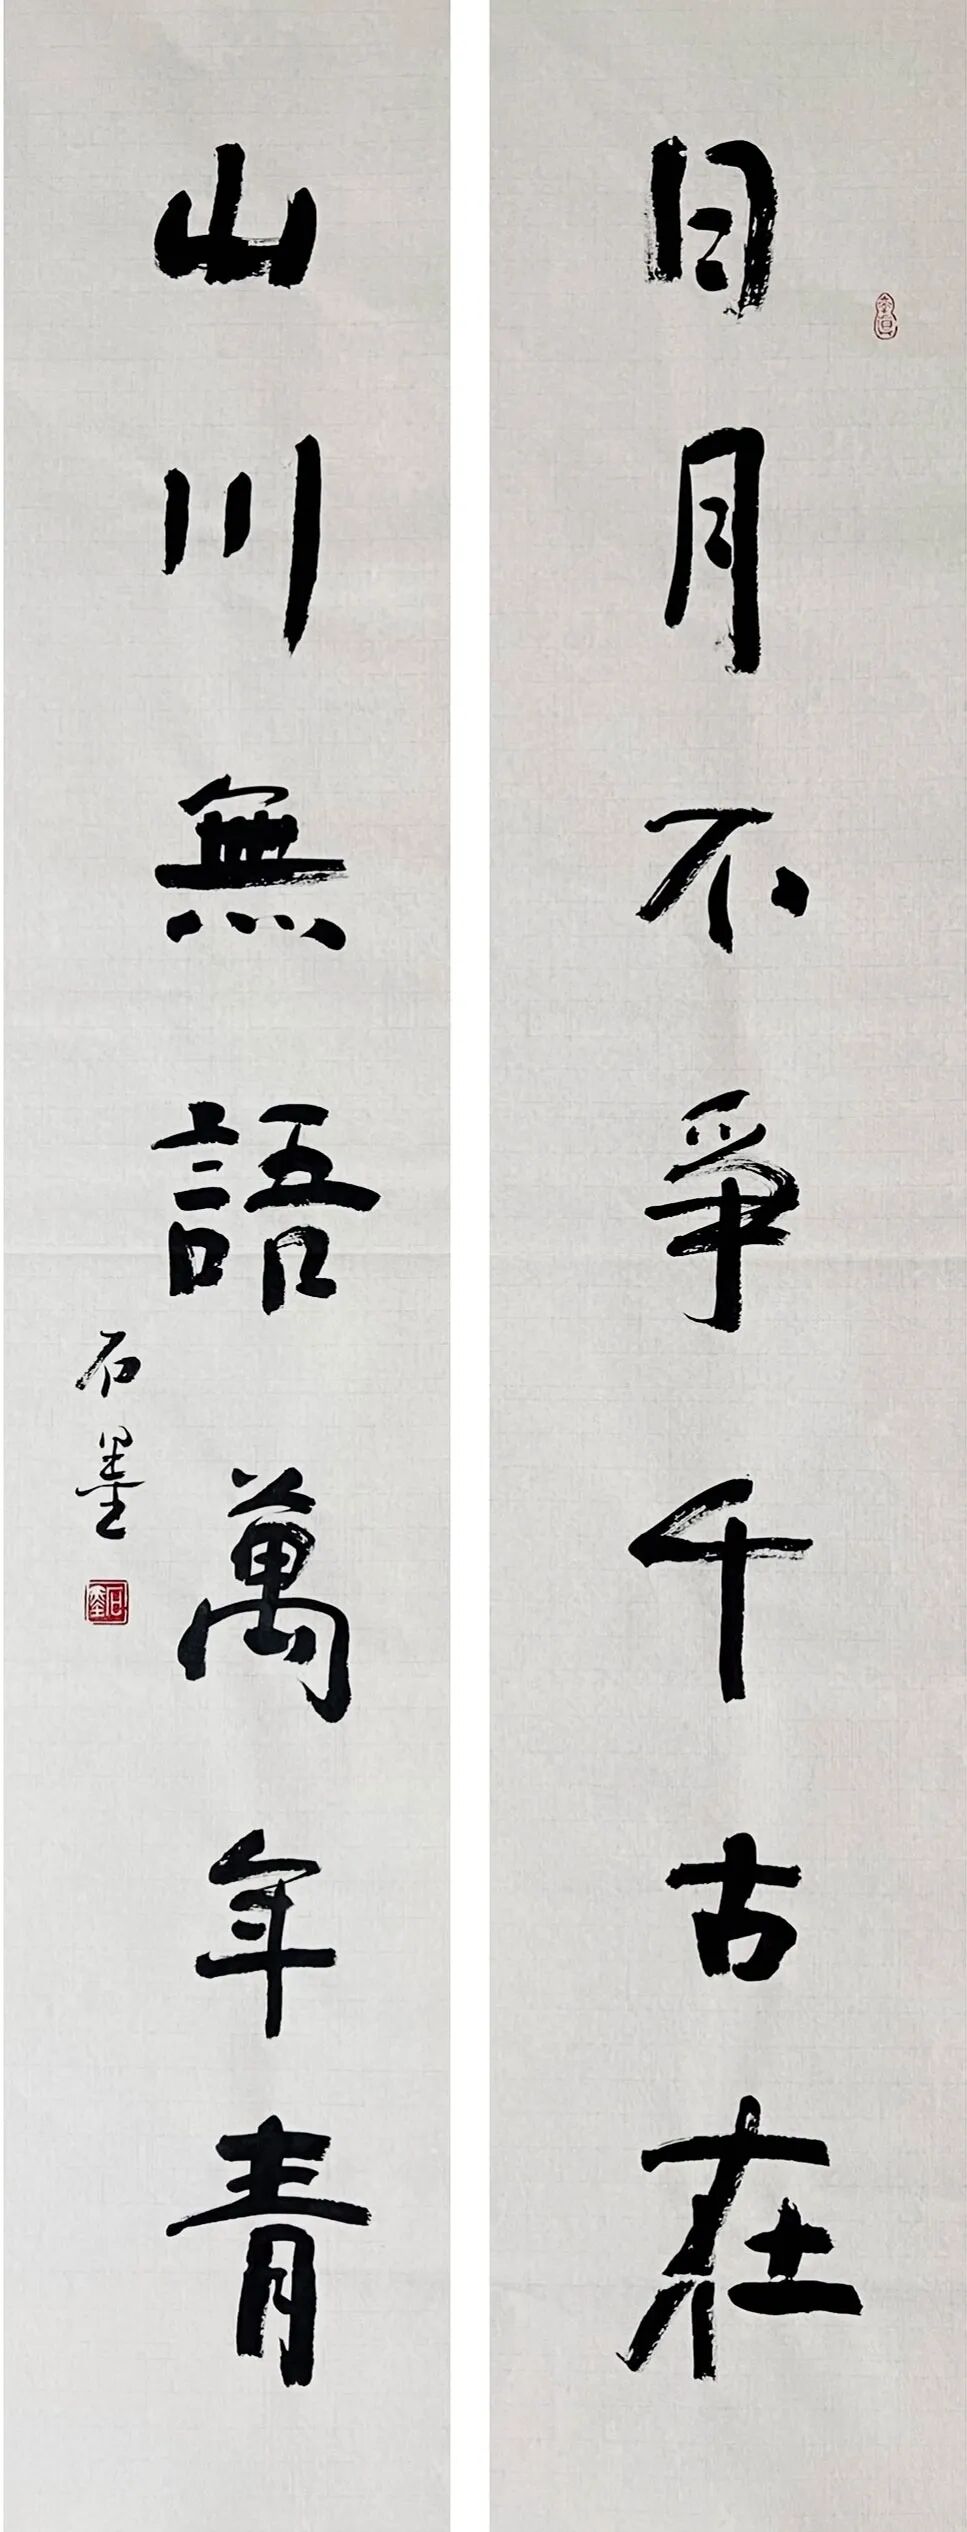 日月不爭千古在
山川無語萬年青
石墨
石墨